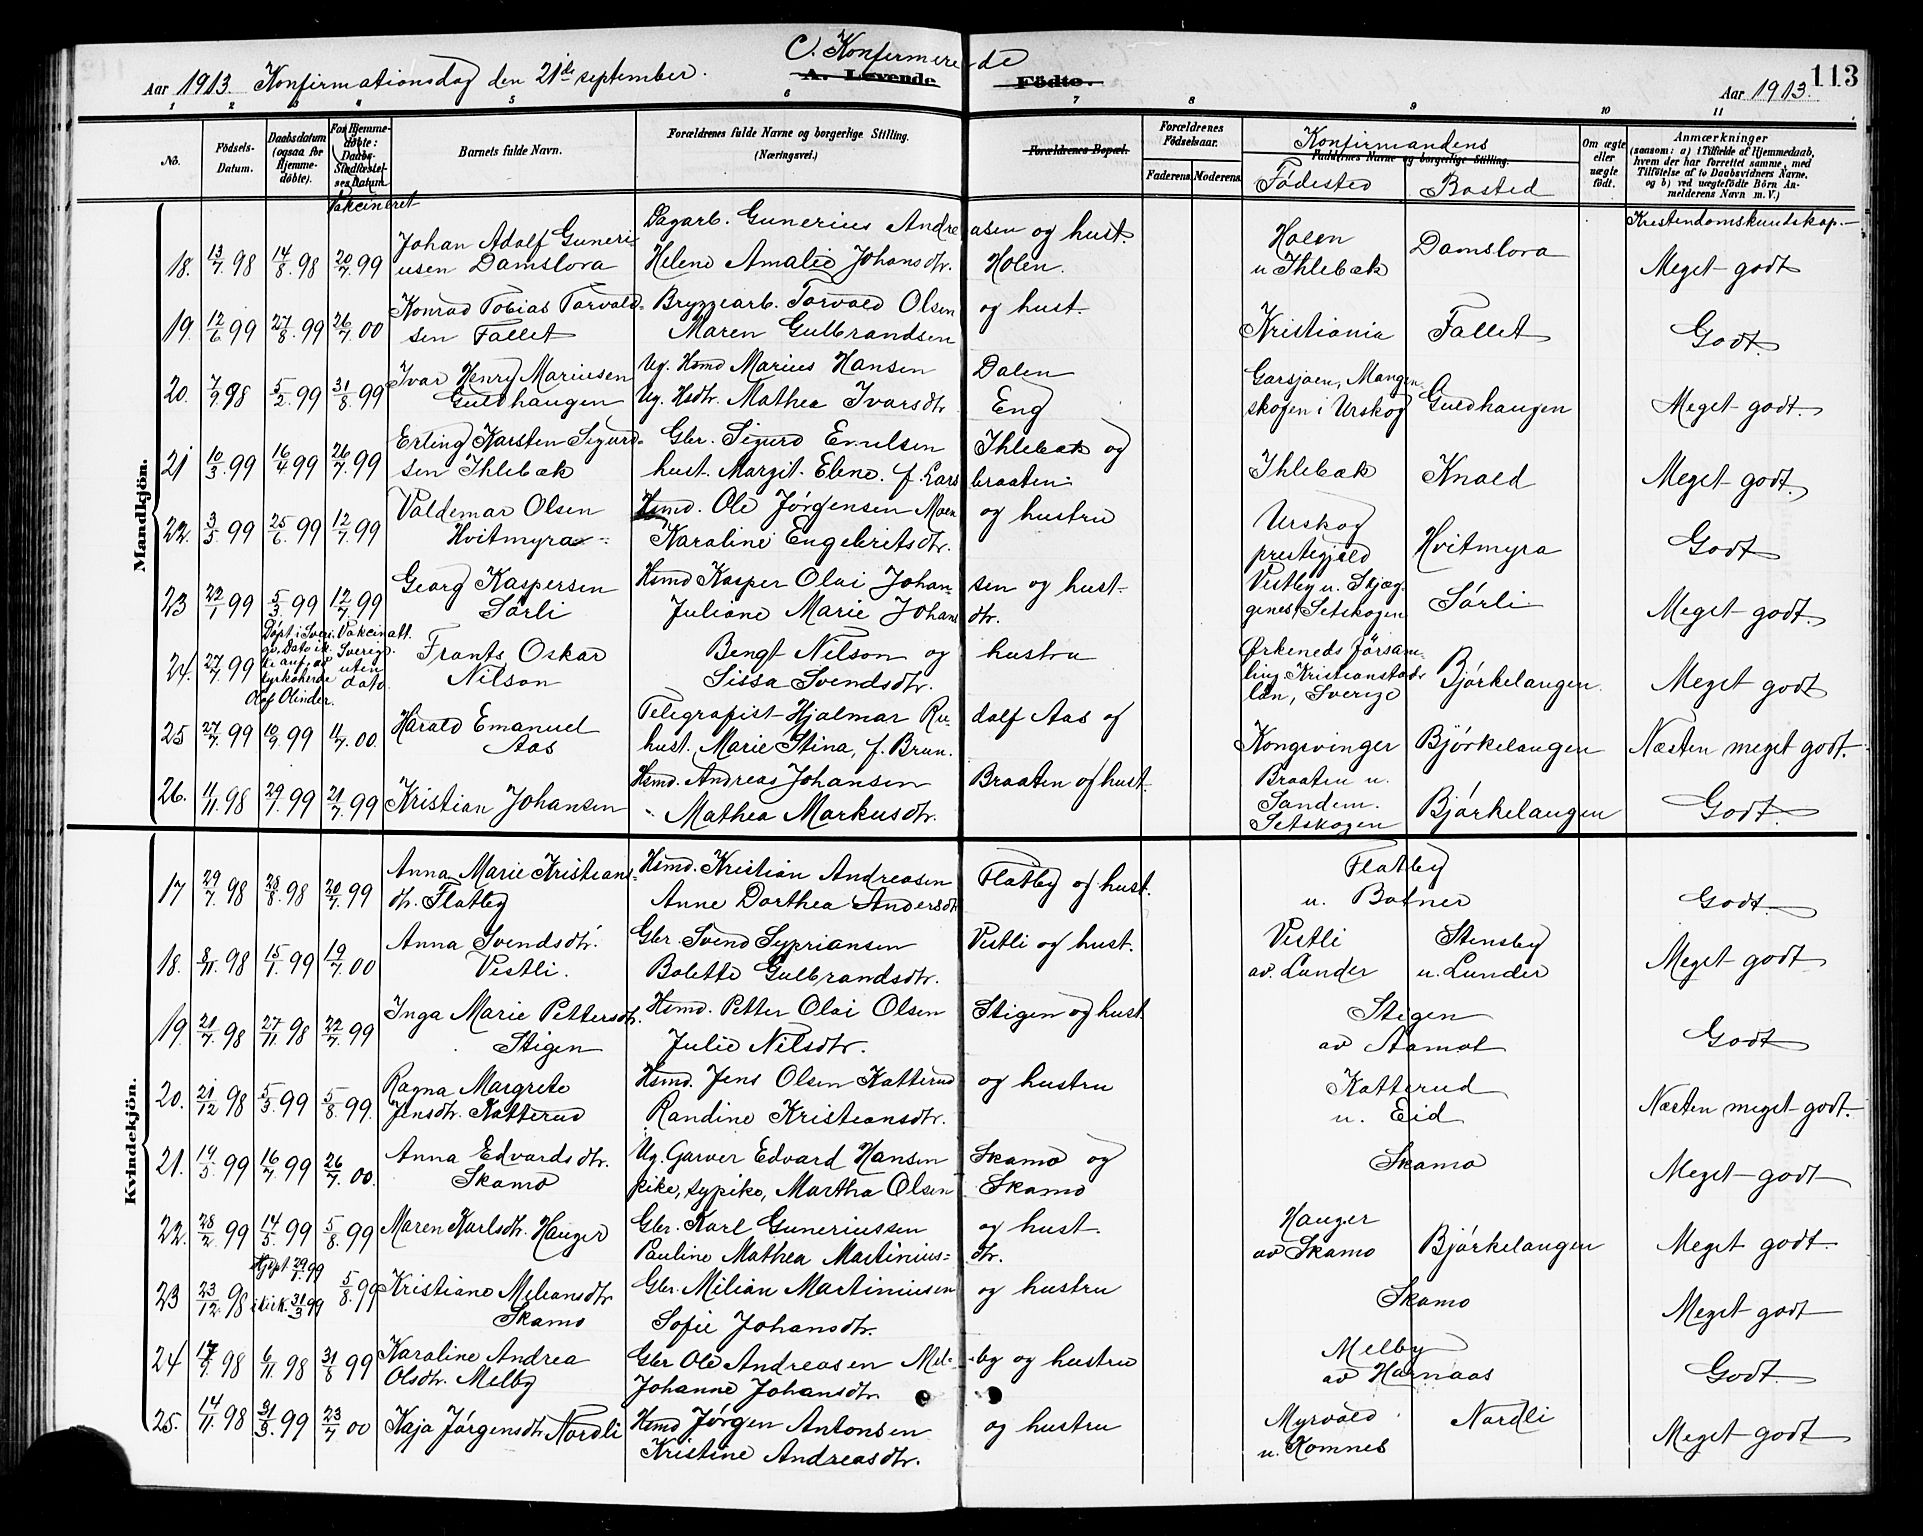 C. Konfirmerede
Aar 1913. Konfirmationsdag den 21de september. A. Levende Födte. Aar 1913. 113
1 2 3 4 5 6 7 8 9 10 11
No. Födsels-Datum. Daabsdatum (ogsaa for Hjemme-döbte). For Hjemme-döbte: Daabs-Stadfæstel-ses Datum Barnets fulde Navn. Forældrenes fulde Navne og borgerlige Stilling. (Næringsvei.) Forældrenes Bopæl. Forældrenes Födselsaar. Faderens. Moderens. Konfirmandens Faddernes Navne og borgerlige Stilling. Om ægte eller uægte födt. Anmærkninger (saasom: a) i Tilfælde af Hjemmedaab, hvem der har forrettet samme, med Tilföielse af to Daabsvidners Navne, og b) ved uægtefödte Börn An-melderens Navn m. V.)
Vakcineret Födested Bosted
Kristendomskundskap.
Mandkjön.
18. 13/7 98 14/8 98 20/7 99 Johan Adolf Guneri- Dagarb. Gunerius Andreasen og hust. Holen Damslora Meget godt
usen Damslora Helene Amalie Johansdtr. Holen. u Ihlebæk
19. 12/6 99 27/8 99 26/7 00 Konrad Tobias Torvald- Bryggearb. Torvald Olsen og hust. Kristiania Fallet Godt.
sen Fallet Maren Gulbrandsen
20. 7/9 98 5/2 99 31/8 99 Ivar Henry Mariusen Ug. Hsmd Marius Hansen Dalen Garsjøen, Mangen- Guldhaugen Meget godt.
Guldhaugen Ug. Hsdtr. Mathea Ivarsdtr. Eng skogen i Urskog
21 10/3 99 16/4 99 26/7 99 Erling Karsten Sigurd- Gbr. Sigurd Emilsen Ihlebæk og Ihlebæk Knold Meget godt.
sen Ihlebæk hust. Margit. Elene. f. Larsbraaten.
22. 3/5 99 25/6 99 12/7 99 Valdemar Olsen Hsmd. Ole Jørgensen Moen og hustru Urskog Hvitmyra Godt
Hvitmyra Karoline Engebritsdtr. prestegjæld
23 22/1 99 5/3 99 12/7 99 Georg Kaspersen Hsmd Kasper Olai Johansen og hust- Vestby u. Skjæg- Sørli Meget godt.
Sørli Juliane Marie Johansdtr. genes, Setskogen
24. 27/7 99 Døpt i Sveri- ge, Dato ik- ke anf. av kyrkoherde Olof Olinder. Vakcin. att. Sverige. uten dato Frants Oskar Bengt Nilson og hustru Ørkeneds Församling Kristianstads län, Sverige Bjørkelangen. Meget godt
Nilson Sissa Svendsdtr.
25 27/7 99 10/9 99 11/7 00. Harald Emanuel Telegrafist Hjalmar Rudolf Aas og Kongsvinger Bjørkelangen Næsten meget godt.
Aas hust. Marie Stina, f. Brun.
26. 11/11 98 29/1 99 21/7 99 Kristian Johansen Hsmd. Andreas Johansen Braaten og hust. Braaten u. Sandem. Setskogen Bjørkelangen Godt.
Mathea Markusdtr.
Kvindekjön.
17 29/7 98 28/8 98 20/7 99 Anna Marie Kristians- Hsmd. Kristian Andreasen Flatby og hust. Flatby Godt.
dtr. Flatby Anne Dorthea Andersdtr u. Botner
18. 8/11 98 15/1 99 19/7 00 Anna Svendsdtr. Gbr. Svend Sypriansen Vestli og hust. Vestli Stensby Meget godt
Vestli. Bolette Gulbrandsdtr. av. Lunder u. Lunder
19. 21/7 98 27/11 98 22/7 99 Inga Marie Pettersdtr. Hsmd. Petter Olai Olsen Stigen og hust Stigen Godt
Stigen Julie Nilsdtr. av Aamot
20. 21/12 98 5/3 99 5/8 99. Ragna Margrete Hsmd. Jens Olsen Katterud og hustru Katterud Næsten meget godt.
Jensdtr. Katterud Randine Kristiansdtr. u. Eid
21. 19/5 99 16/7 99 26/7 00. Anna Edvardsdtr. Ug. Garver Edvard Hansen Skamo og Skamo Meget godt
Skamo pike, sypike, Martha Olsen Skamo
22. 28/2 99 14/5 99 5/8 99 Maren Karlsdtr. Hauger Gbr. Karl Guneriussen og hust. Hauger Bjørkelangen Meget godt.
Pauline Mathea Martiniusdtr. av Skamo
23 23/12 98 Hjdpt 29/1 99 i kirk. 31/3 99 5/8 99 Kristiane Meliansdtr Gbr. Milian Martiniusen og hustru Skamo Meget godt
Skamo Sofie Johansdtr.
24 17/9 98 6/11 98 31/8 99 Karoline Andrea Gbr Ole Andreasen Melby og hustru Melby Godt.
Olsdtr. Melby Johanne Johansdtr. av Harnaas
25. 14/11 98 31/3 99 23/7 00 Kaja Jørgensdtr Nordli Hsmd Jørgen Antonsen og hustru Myrvold Nordli Meget godt
Kristine Andreasdtr. u. Komnes